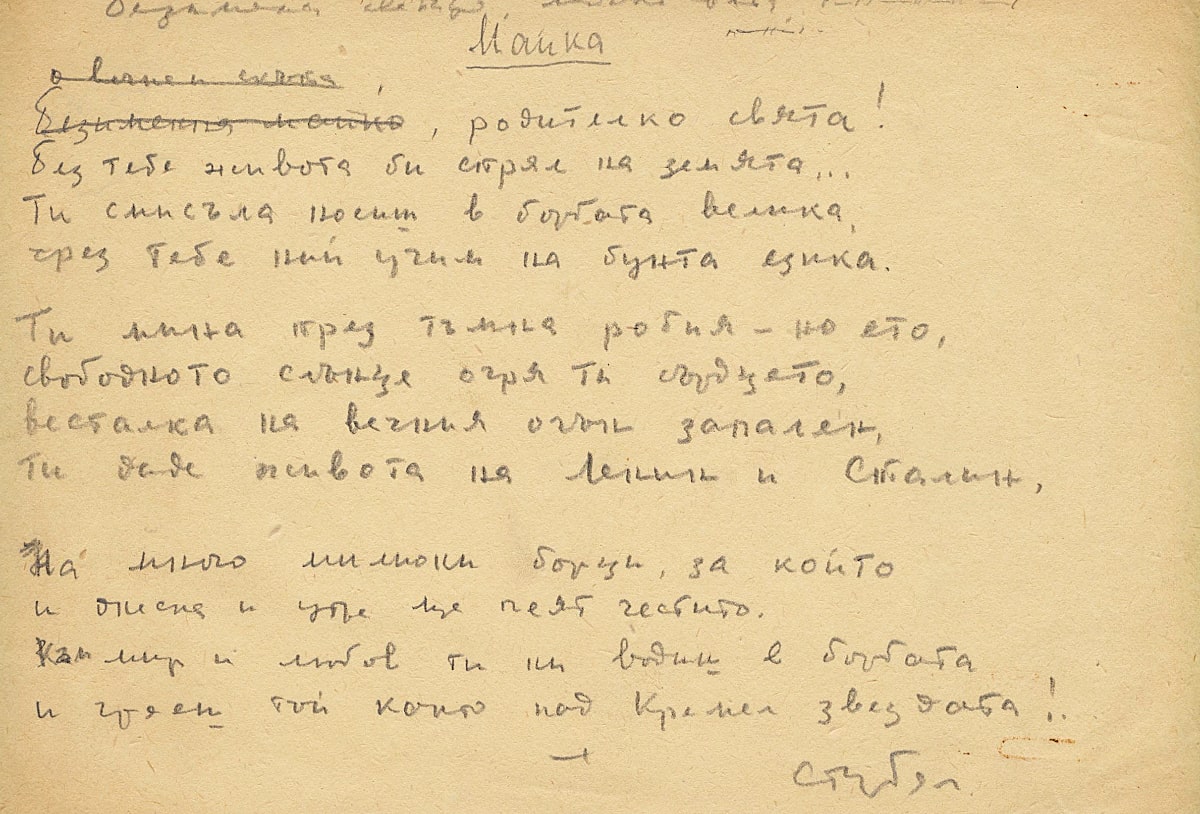 Майка
о вечна и скъпа,
Безименна майко, родителко свята!
Без тебе живота би спрял на земята...
Ти смисъла носиш в борбата велика,
чрез тебе ний учим на бунта езика.
Ти мина през тъмна робия – но ето,
свободното слънце огря ти сърдцето,
весталка на вечния огън запален,
ти даде живота на Ленин и Сталин,
На много милиони борци, за които
и днеска и утре ще пеят честито.
Към мир и любов ти ни водиш в борбата
и грееш тъй както над Кремъл звездата!